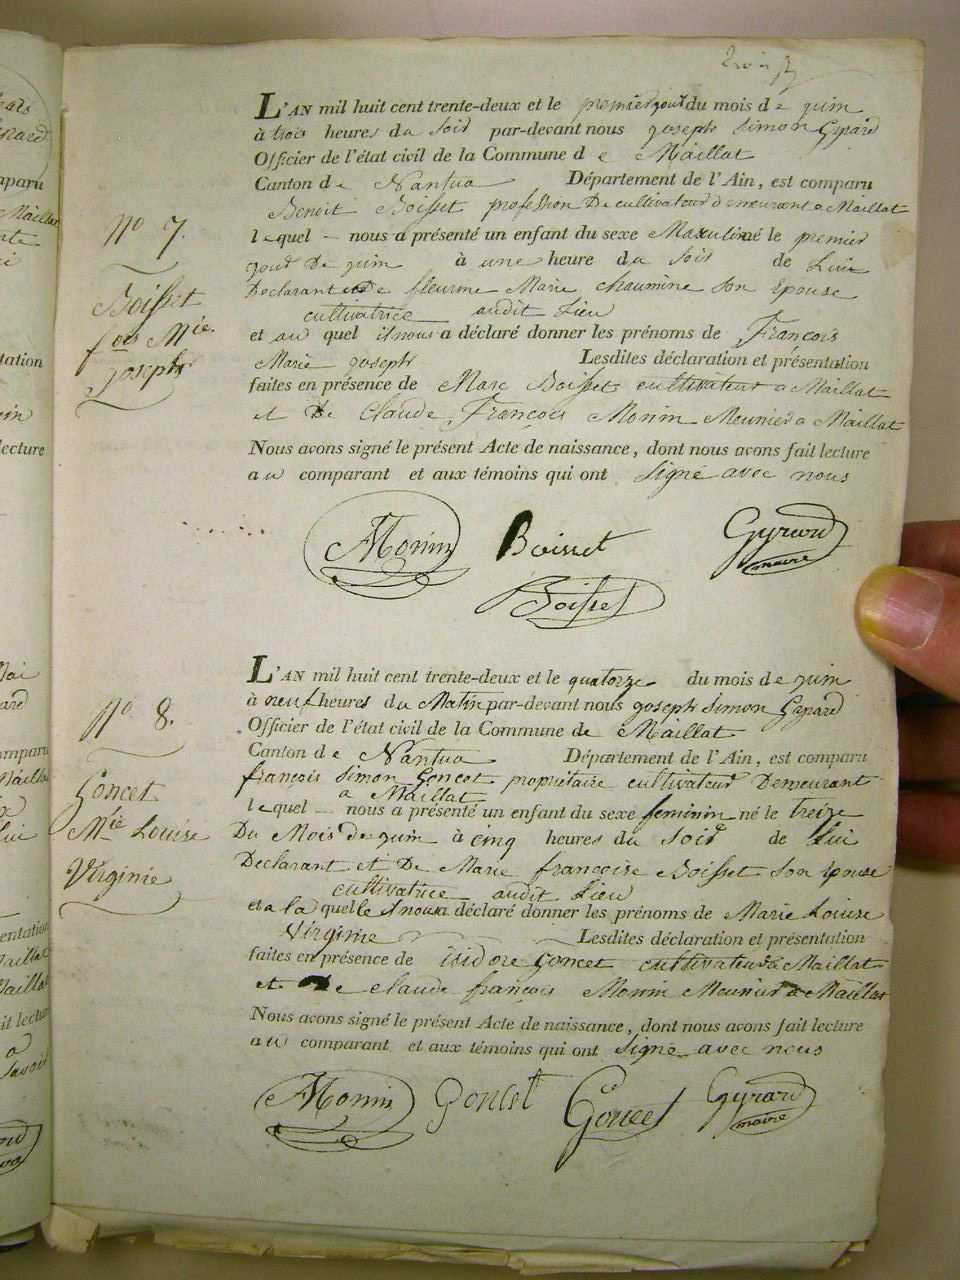 L'AN mil huit cent trente-deux et le premier jour du mois de juin
à trois heures du soir par-devant nous joseph simon Gyrard
Officier de l'état civil de la Commune de Maillat
Canton de Nantua Département de l'Ain, est comparu
Benoit Boisset profession De cultivateur demeurant a Maillat
N.o 7.
lequel nous a présenté un enfant du sexe Masculin né le premier
jour De juin à une heure du soir de Lui
Boisset
fois Mie
joseph
Declarant et de fleurine Marie chaumine son epouse
cultivatrice audit Lieu
et au quel il nous a déclaré donner les prénoms de François
Marie joseph Lesdites déclaration et présentation
faites en présence de Marc Boisset cultivateur a Maillat
et De Claude François Monin Meunier a Maillat
Nous avons signé le présent Acte de naissance, dont nous avons fait lecture
au comparant et aux témoins qui ont signé avec nous
Monin Boisset Gyrard
maire
Boisset
L'AN mil huit cent trente-deux et le quatorze du mois de juin
à neuf heures du Matin par-devant nous joseph simon Gyrard
N.o 8.
Officier de l'état civil de la Commune de Maillat
Canton de Nantua Département de l'Ain, est comparu
françois simon Goncet propriétaire cultivateur Demeurant
a Maillat
Goncet
Mie Louise
Virginie
lequel nous a présenté un enfant du sexe feminin né le treize
Du Mois de juin à cinq heures du soir de Lui
Declarant et De Marie francoise Boisset son epouse
cultivatrice audit Lieu
et a la quelle il nous a déclaré donner les prénoms de Marie Louise
Virginie Lesdites déclaration et présentation
faites en présence de isidore Goncet cultivateur a Maillat
et De claude françois Monin Meunier a Maillat
Nous avons signé le présent Acte de naissance, dont nous avons fait lecture
au comparant et aux témoins qui ont signé avec nous
Monin Goncet Goncet Gyrard
maire